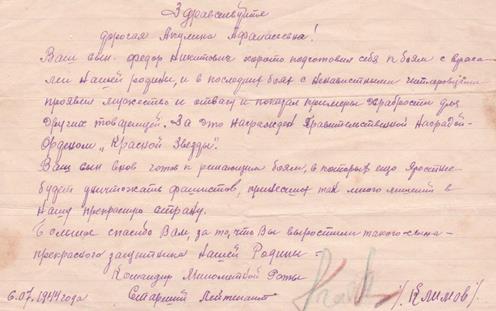 Здравствуйте
дорогая Акулина Афанасьевна!
Ваш сын Федор Никитович хорошо подготовил себя к боям с врага-
ми нашей родины, и в последних боях с ненавистными гитлеровцами
проявил мужество и отвагу и показал примеры храбрости для
других товарищей. За это награжден Правительственной наградой-
Орденом „Красной Звезды".
Ваш сын вновь готов к решающим боям, в которых ещо яростнее
будет уничтожать фашистов, принесших так много лишений в
нашу прекрасную страну.
Большое спасибо Вам, за то, что Вы выростили такого сына-
прекрасного защитника нашей Родины -
Командир Минометной Роты
6.07.1944 года Старший Лейтенант /Климов/